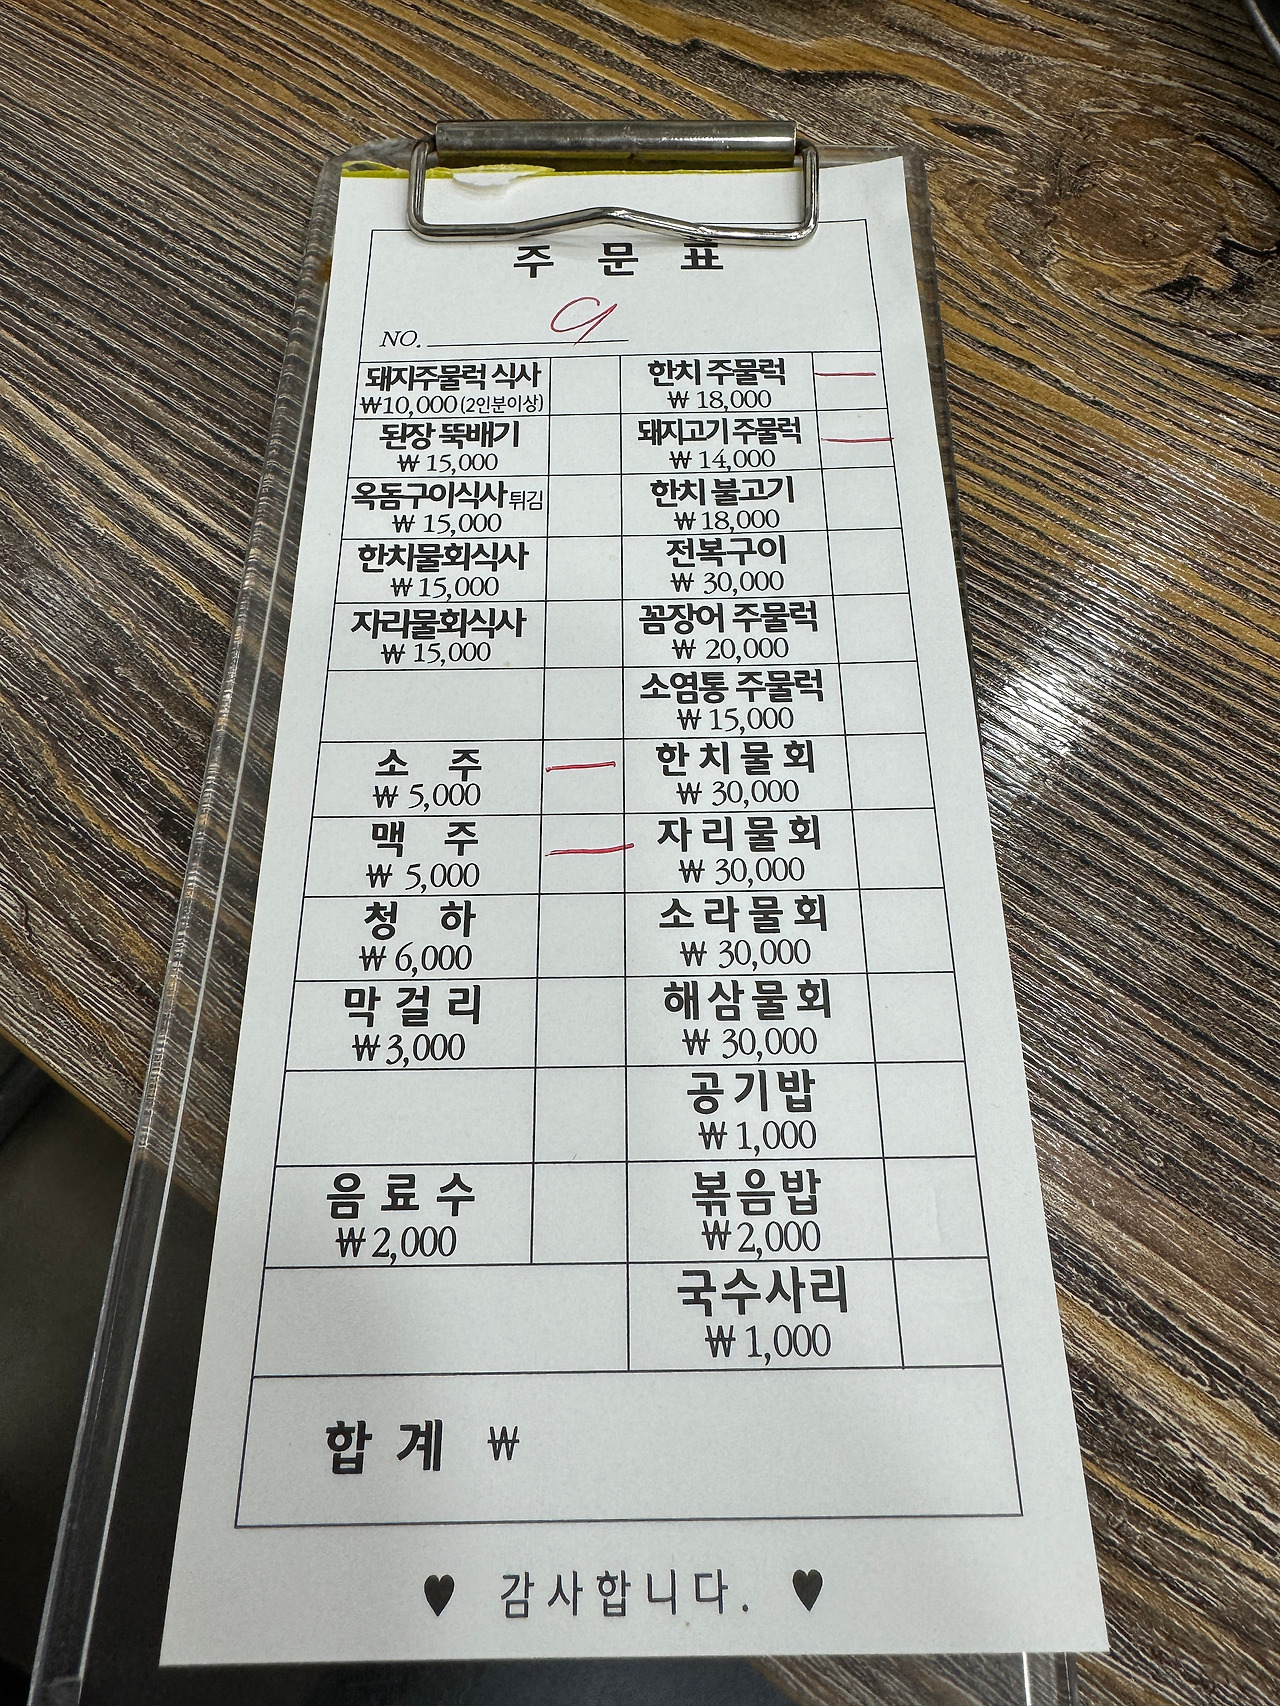 주 문 표
NO. 9
돼지주물럭 식사
₩10,000(2인분이상)
한치 주물럭
₩ 18,000
된장 뚝배기
₩ 15,000
돼지고기 주물럭
₩ 14,000
옥돔구이식사 튀김
₩ 15,000
한치 불고기
₩ 18,000
한치물회식사
₩ 15,000
전복구이
₩ 30,000
자리물회식사
₩ 15,000
꼼장어 주물럭
₩ 20,000
소염통 주물럭
₩ 15,000
소 주
₩ 5,000
한치물회
₩ 30,000
맥 주
₩ 5,000
자리물회
₩ 30,000
청 하
₩ 6,000
소라물회
₩ 30,000
막걸리
₩3,000
해삼물회
₩ 30,000
공기밥
₩ 1,000
음료수
₩2,000
볶음밥
₩2,000
국수사리
₩ 1,000
합 계 ₩
♥ 감사합니다. ♥